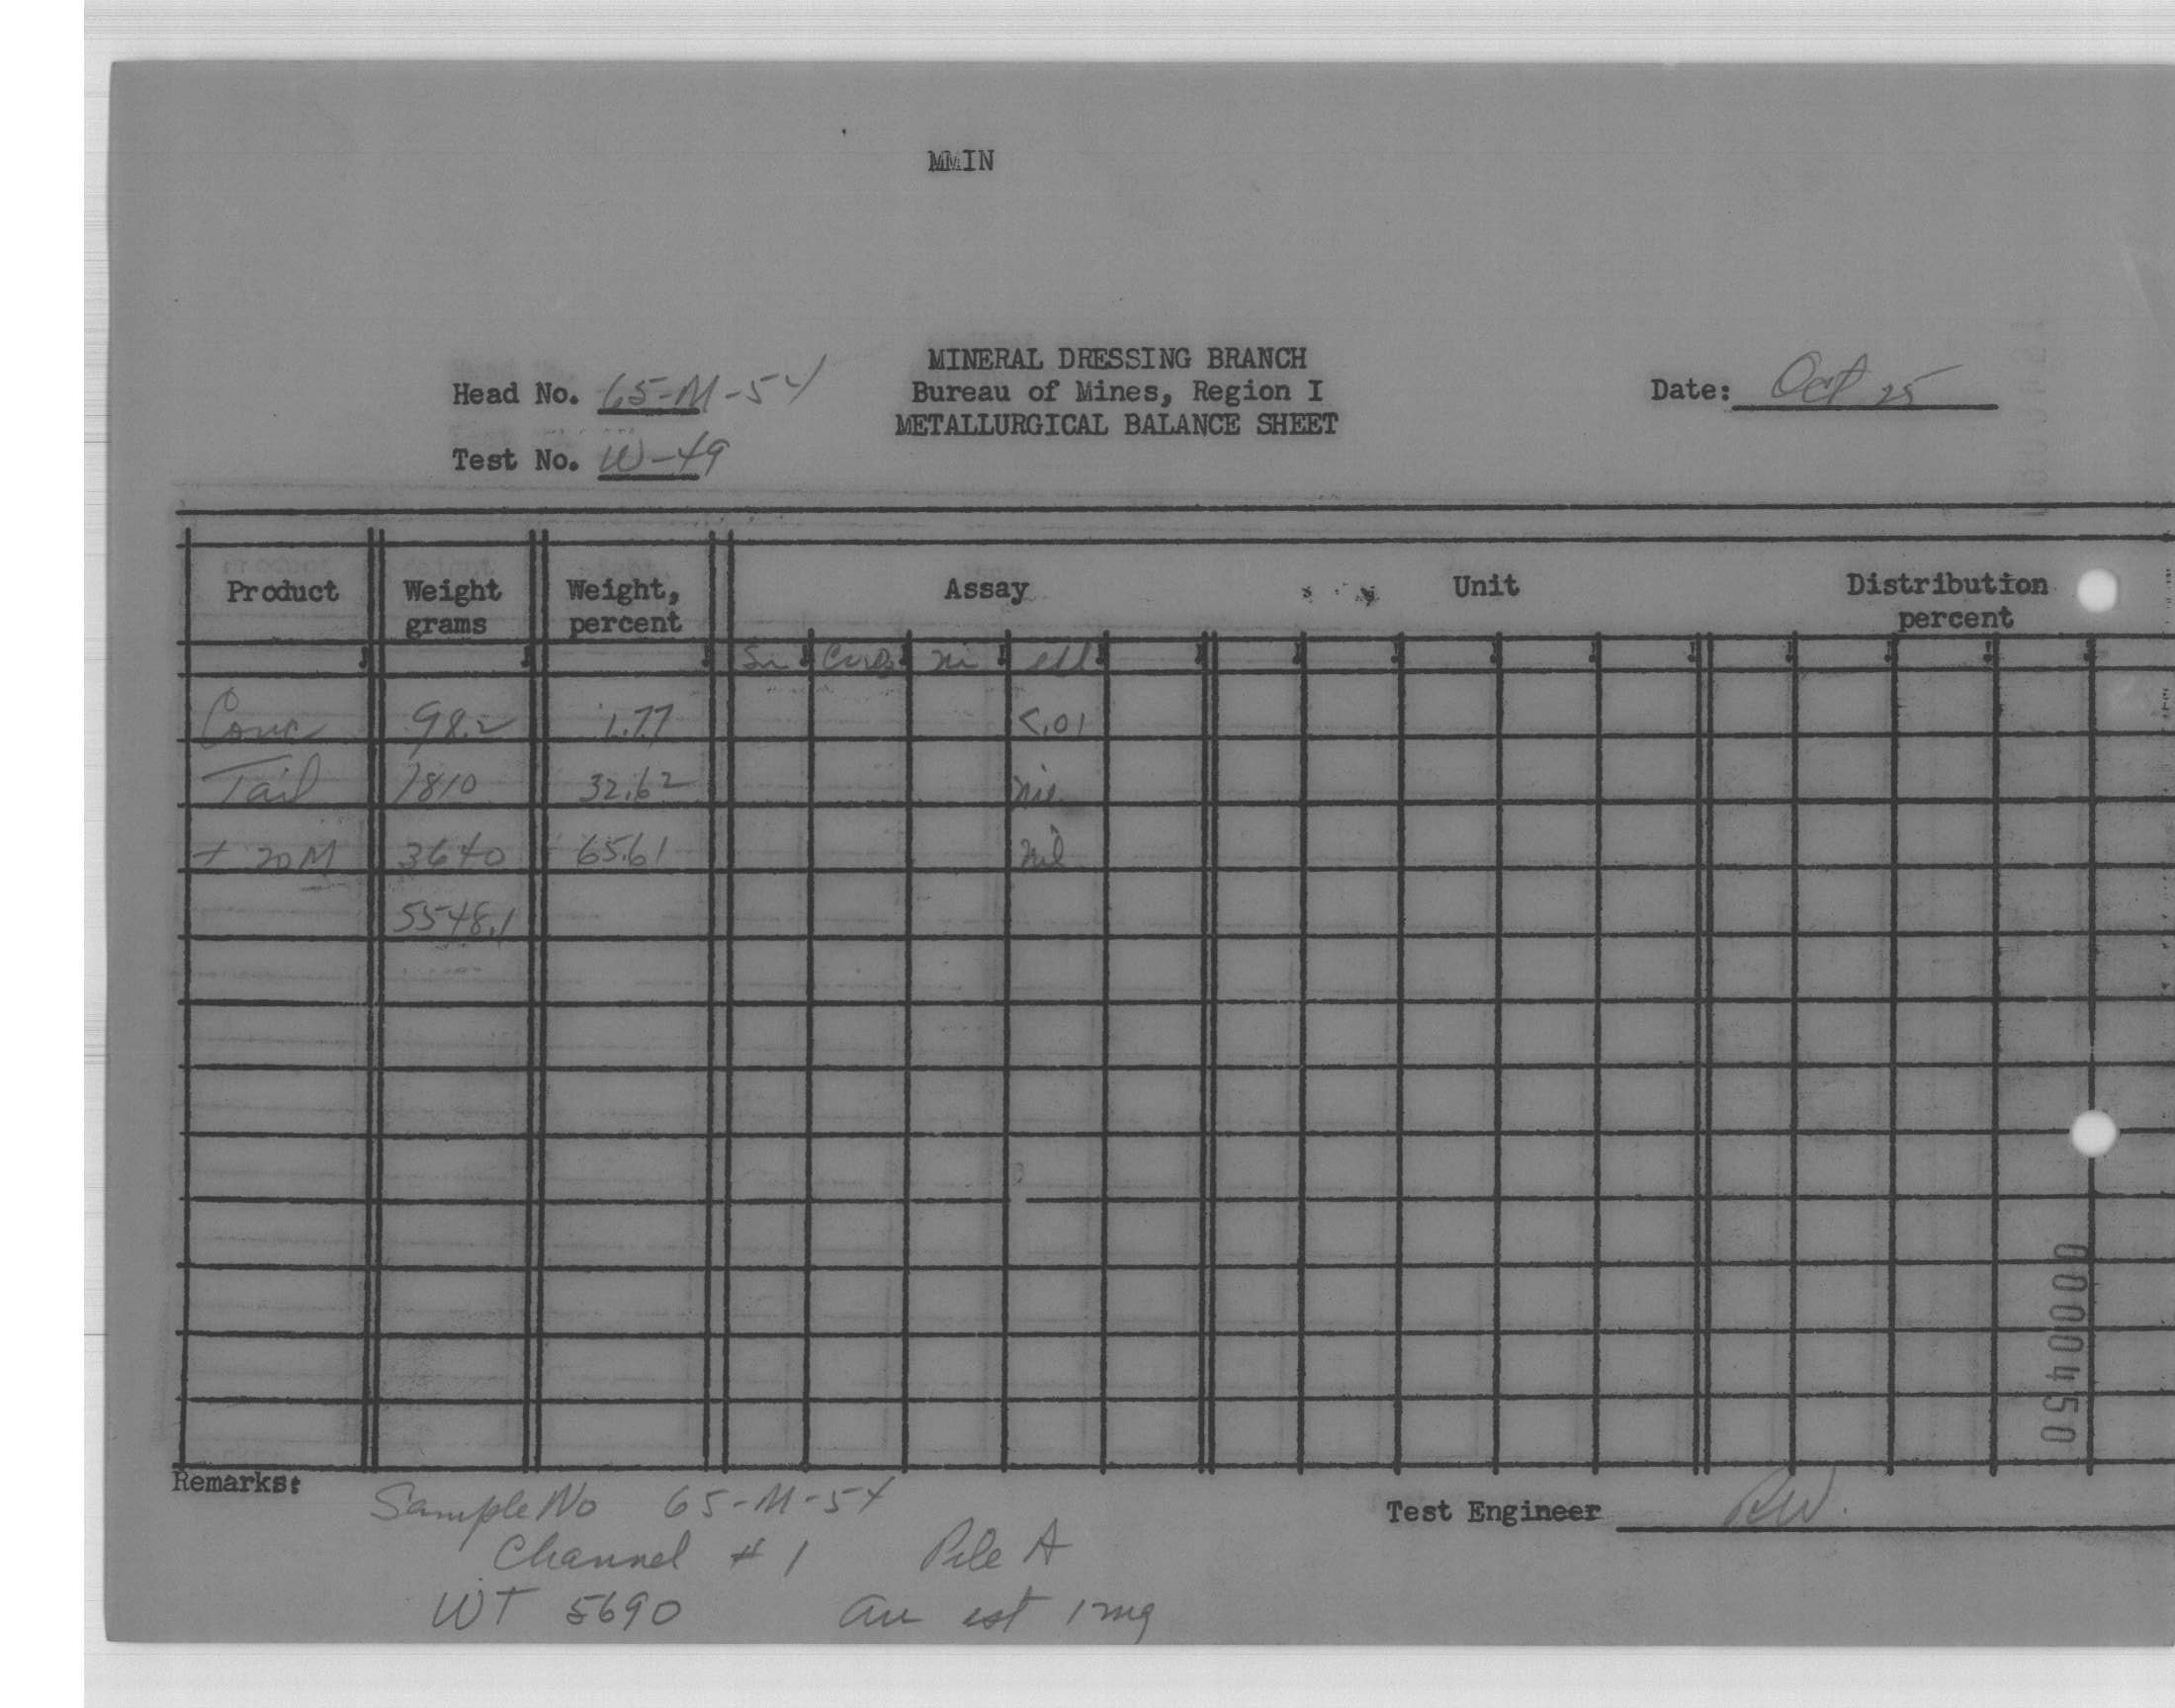 MMIN
MINERAL DRESSING BRANCH
Head No. 65-M-54 Bureau of Mines, Region I Date: Oct 25
METALLURGICAL BALANCE SHEET
Test No. W-49
Product Weight grams Weight, percent Assay Unit Distribution percent
Sn Ni
Conc 98.2 1.77 <.01
Tail 1810 32.62 nil
+ 20M 3640 65.61 nil
5548.1
0000450
Remarks: Sample No 65-M-54 Test Engineer RW.
Channel #1 Pile A
WT 5690 au est 1mg